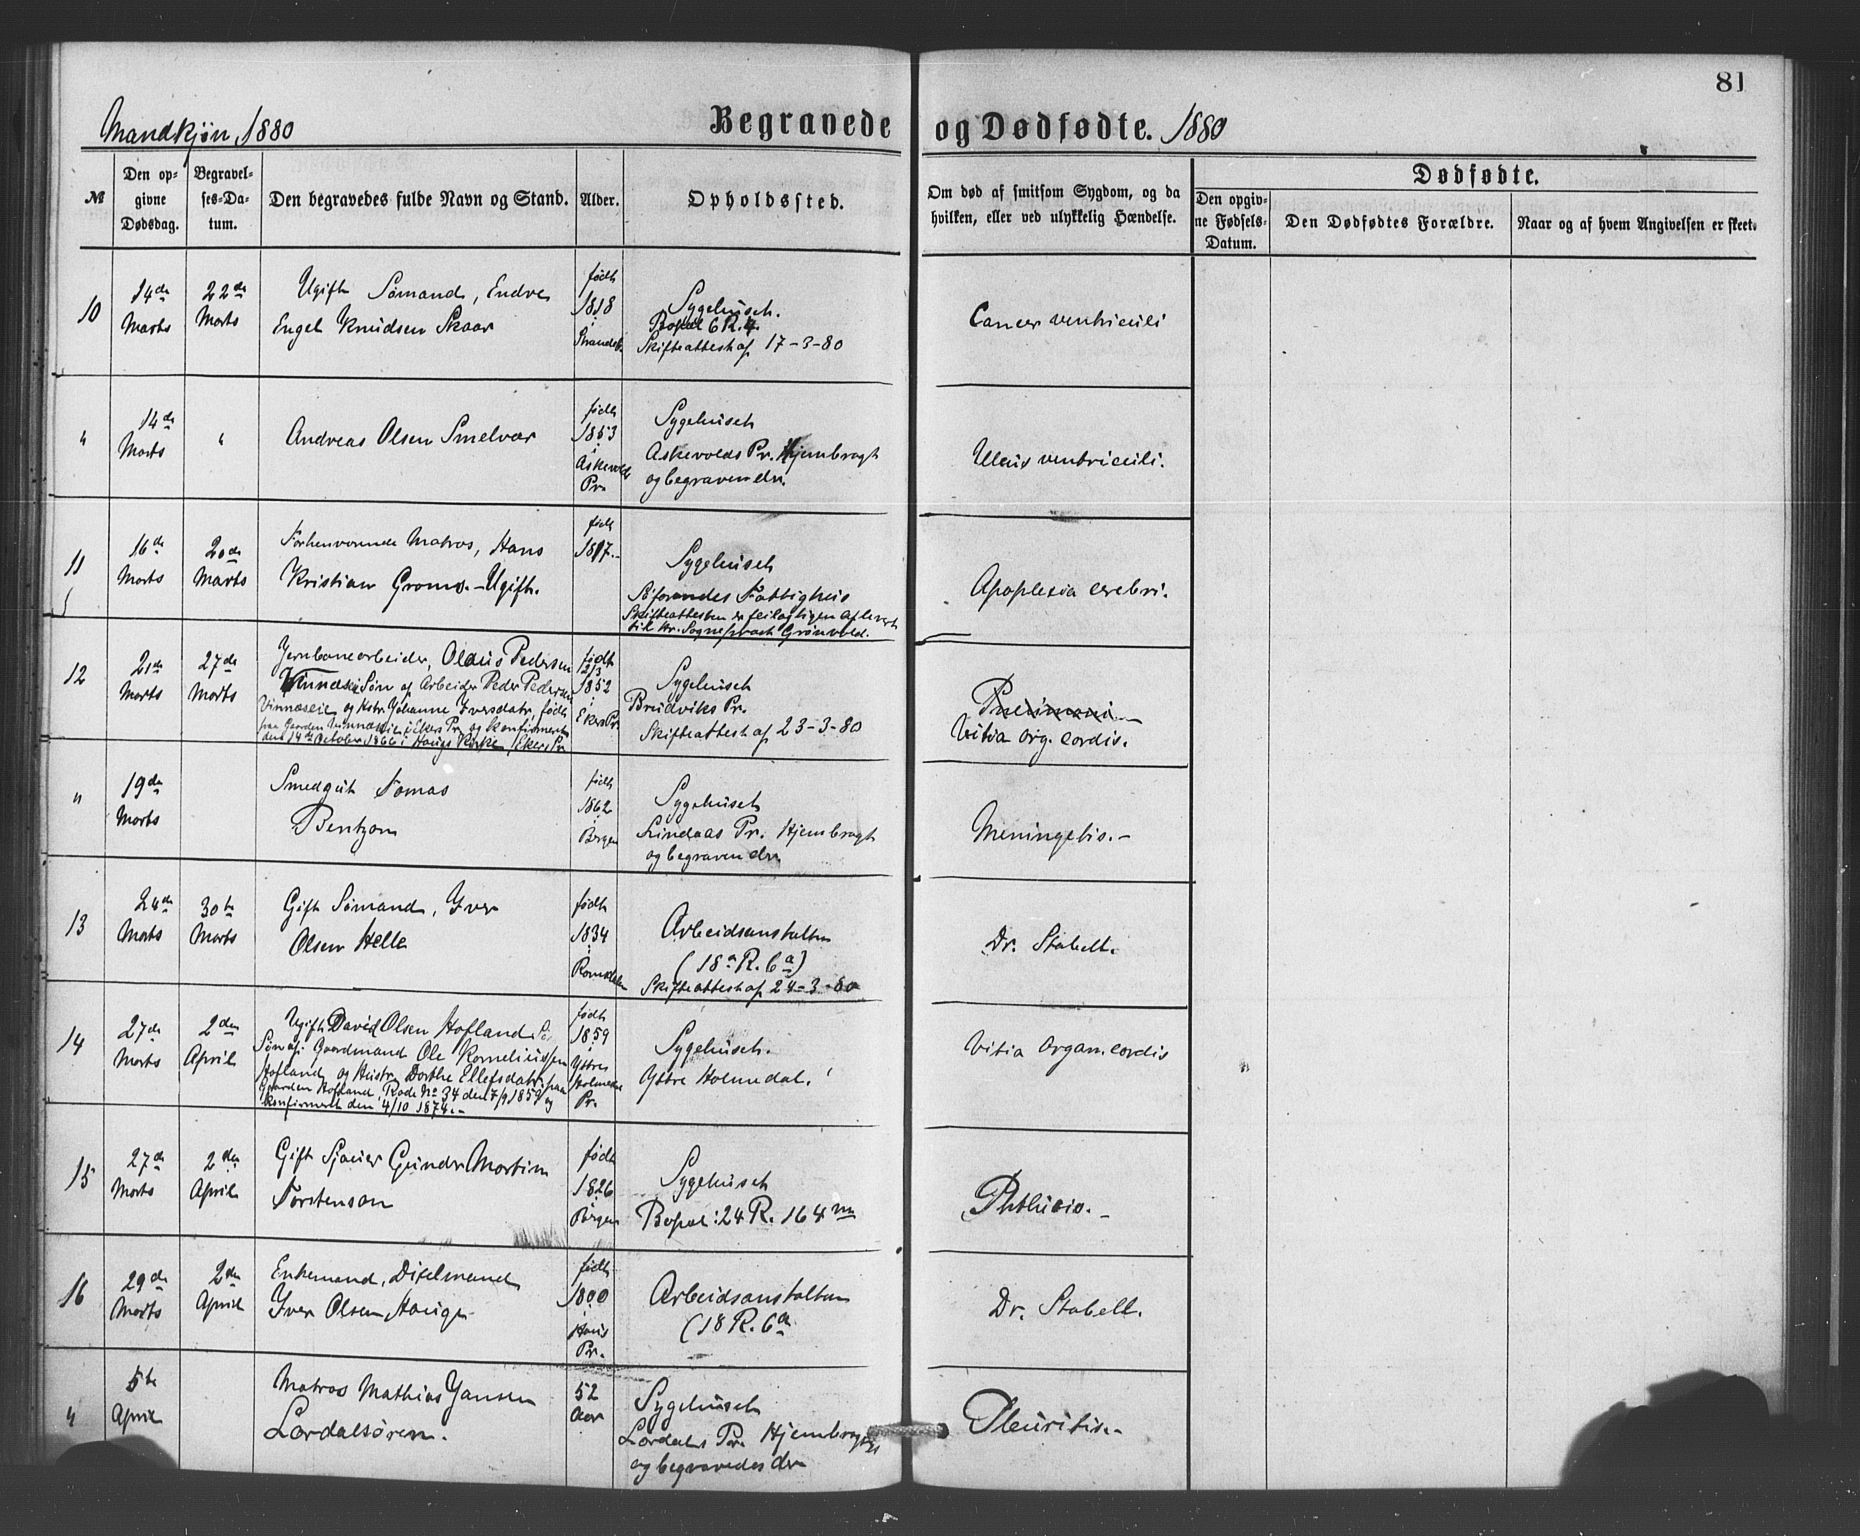 81
Mandkjøn, 1880
Begravede og Dødfødte. 1880
№
Den opgivne Dødsdag.
Begravelses-Datum.
Den begravedes fulde Navn og Stand.
Alder.
Opholdssted.
Om død af smitsom Sygdom, og da hvilken, eller ved ulykkelig Hændelse.
Dødfødte.
Den opgivne Fødsels-Datum.
Den Dødfødtes Forældre.
Naar og af hvem Angivelsen er skeet.
10
14de Marts
22de Marts
Ugift Sømand, Endre
Engel Knudsen Skaar
født
1818
i
Sygehuset.
Bopæl 6 R. 4.
Skifteattest af 17-3-80
Cancer ventriculi
"
14de Marts
"
Andreas Olsen Smelvær
født
1853
i
Askevolds
Pr.
Sygehuset
Askevolds Pr. Hjembragt
og begraven der.
Ulcus ventriculi.
11
16de Marts
20de Marts
Forhenværende Matros, Hans
Kristian Groms. - Ugift.
født
1817.-
Sygehuset
Søforendes Fattighus
Skifteattesten er feilagtigen afleveret
til Hr. Sogneprest Grønvold.
Apoplexia cerebri.
12
21de Marts
27de Marts
Jernbanearbeider, Olaus Pedersen
Søn af Arbeider Peder Pedersen
Vinnæseie og Hstr. Johanne Iversdatr. født
paa Gaarden Vinnæseie i Ekers Pr. og konfirmeret
den 14de October 1866 i Haugs Kirke, Ekers Pr.
født
2/3
1852
i
Ekers Pr.
Sygehuset
Brudviks Pr.
Skifteattest af 23-3-80
Pneumoni -
Vitia org. cordis.
"
19de Marts
Smedgut Tomas
Bentzon
født
1862
i
Bergen
Sygehuset
Lindaas Pr. Hjembragt
og begraven der.
Meningetis.-
13
24de Marts
30te Marts
Gift Sømand, Iver
Olsen Helle
født
1834
i
Romsdalen
Arbeidsanstalten
(18a R. 6a)
Skifteattest af 24-3-80
Dr. Stabell.
14
27de Marts
2den April
Ugift David Olsen Hofland
Søn af Gaardmand Ole Korneliussen
Hofland og Hustr. Dorthe Ellefsdatr. paa
Gaarden Hofland, Rode No 34 den 7/9 1859 og
konfirmeret den 4/10 1874.-
født
1859
i
Yttre
Holmedal
Pr.
Sygehuset.
Yttre Holmedal.
Vitia organ. cordis
15
27de Marts
2den April
Gift Sjauer Gunder Martin
Torstenson
født
1826
i
Bergen
Sygehuset
Bopæl: 24 R. 164 m
Phthisis.-
16
29de Marts
2den April
Enkemand, Dixelmand
Iver Olsen Hauge
født
1800
i
Haus
Pr.
Arbeidsanstalten
(18 R. 6a
Dr. Stabell.
"
5te April
Matros Mathias Jansen
Lærdalsøren.
52
Aar
Sygehuset
Lærdals Pr. Hjembragtes
og begravedes der
Pleuritis.-